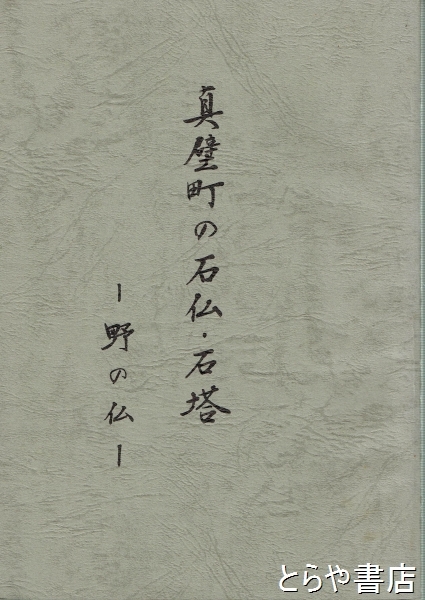 真壁町の石仏・石塔
ー野の仏ー
とらや書店